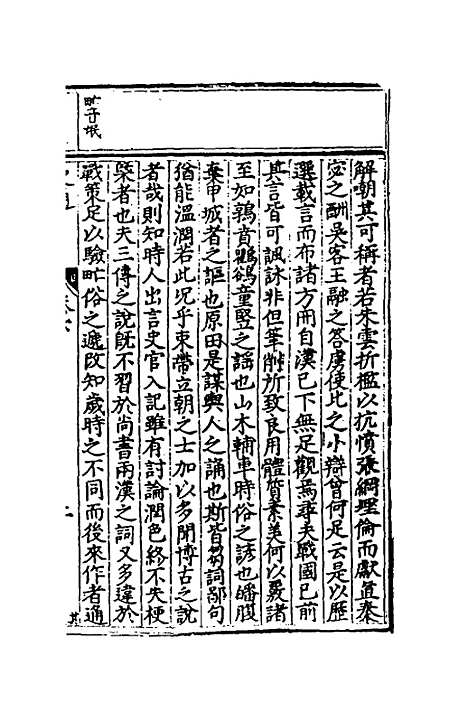 解朝其可稱者若朱雲折檻以抗憤張綱埋倫而獻直秦
宓之酬吳客王融之答虜使此之小辯曾何足云是以歷
選載言而布諸方冊自漢已下無足觀焉尋夫戰國已前
其言皆可諷詠非但筆削所致良用體質素美何以覈諸
至如鶉賁鸜鵒童豎之謠也山木輔車時俗之諺也皤腹
棄甲城者之謳也原田是謀輿人之誦也斯皆芻詞鄙句
猶能溫潤若此况乎束帶立朝之士加以多聞博古之說
者哉則知時人出言史官入記雖有討論潤色終不失梗
槩者也夫三傳之說旣不習於尚書兩漢之詞又多違於
戰策足以驗甿俗之遞改知歲時之不同而後來作者通